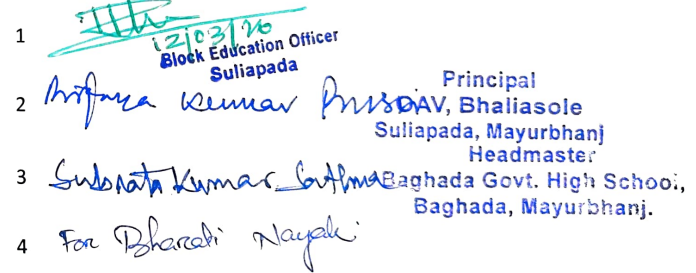 1
12/03/20
Block Education Officer
Suliapada
2 Kumar
Principal
OAV, Bhaliasole
Suliapada, Mayurbhanj
3 Subrata Kumar
Headmaster
Baghada Govt. High School,
Baghada, Mayurbhanj.
4 For Bharati Nayak